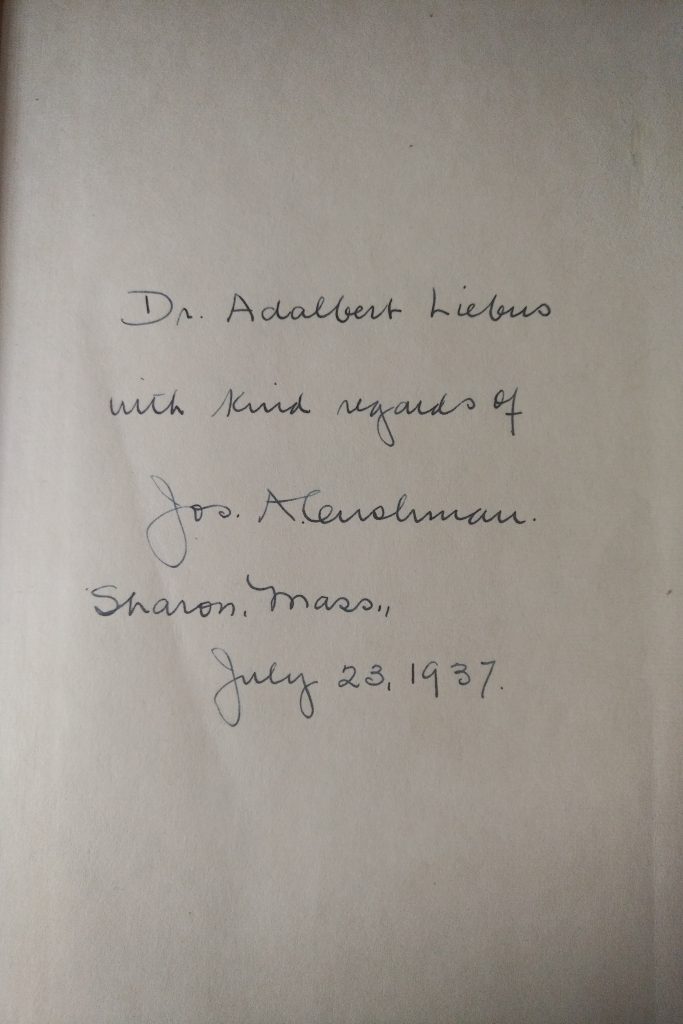 Dr. Adalbert Liebus
with kind regards of
Jos. A. Cushman.
Sharon, Mass.,
July 23, 1937.